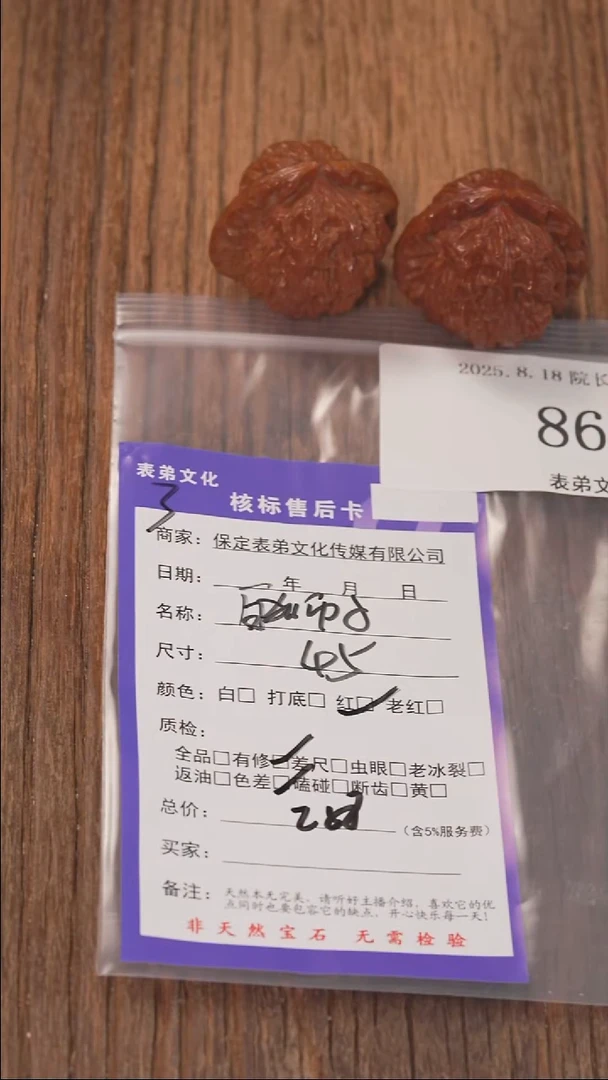 2025.8.18 院长
86
表弟文
表弟文化
核标售后卡
3
商家：保定表弟文化传媒有限公司
日期：年 月 日
名称：
尺寸：45
颜色：白□ 打底□ 红□ 老红□
质检：
全品□有修□差尺□虫眼□老冰裂□
返油□色差□磕碰□断齿□黄□
总价：288（含5%服务费）
买家：
备注：天然本无完美，请听好主播介绍，喜欢它的优
点同时也要包容它的缺点，开心快乐每一天！
非天然宝石 无需检验